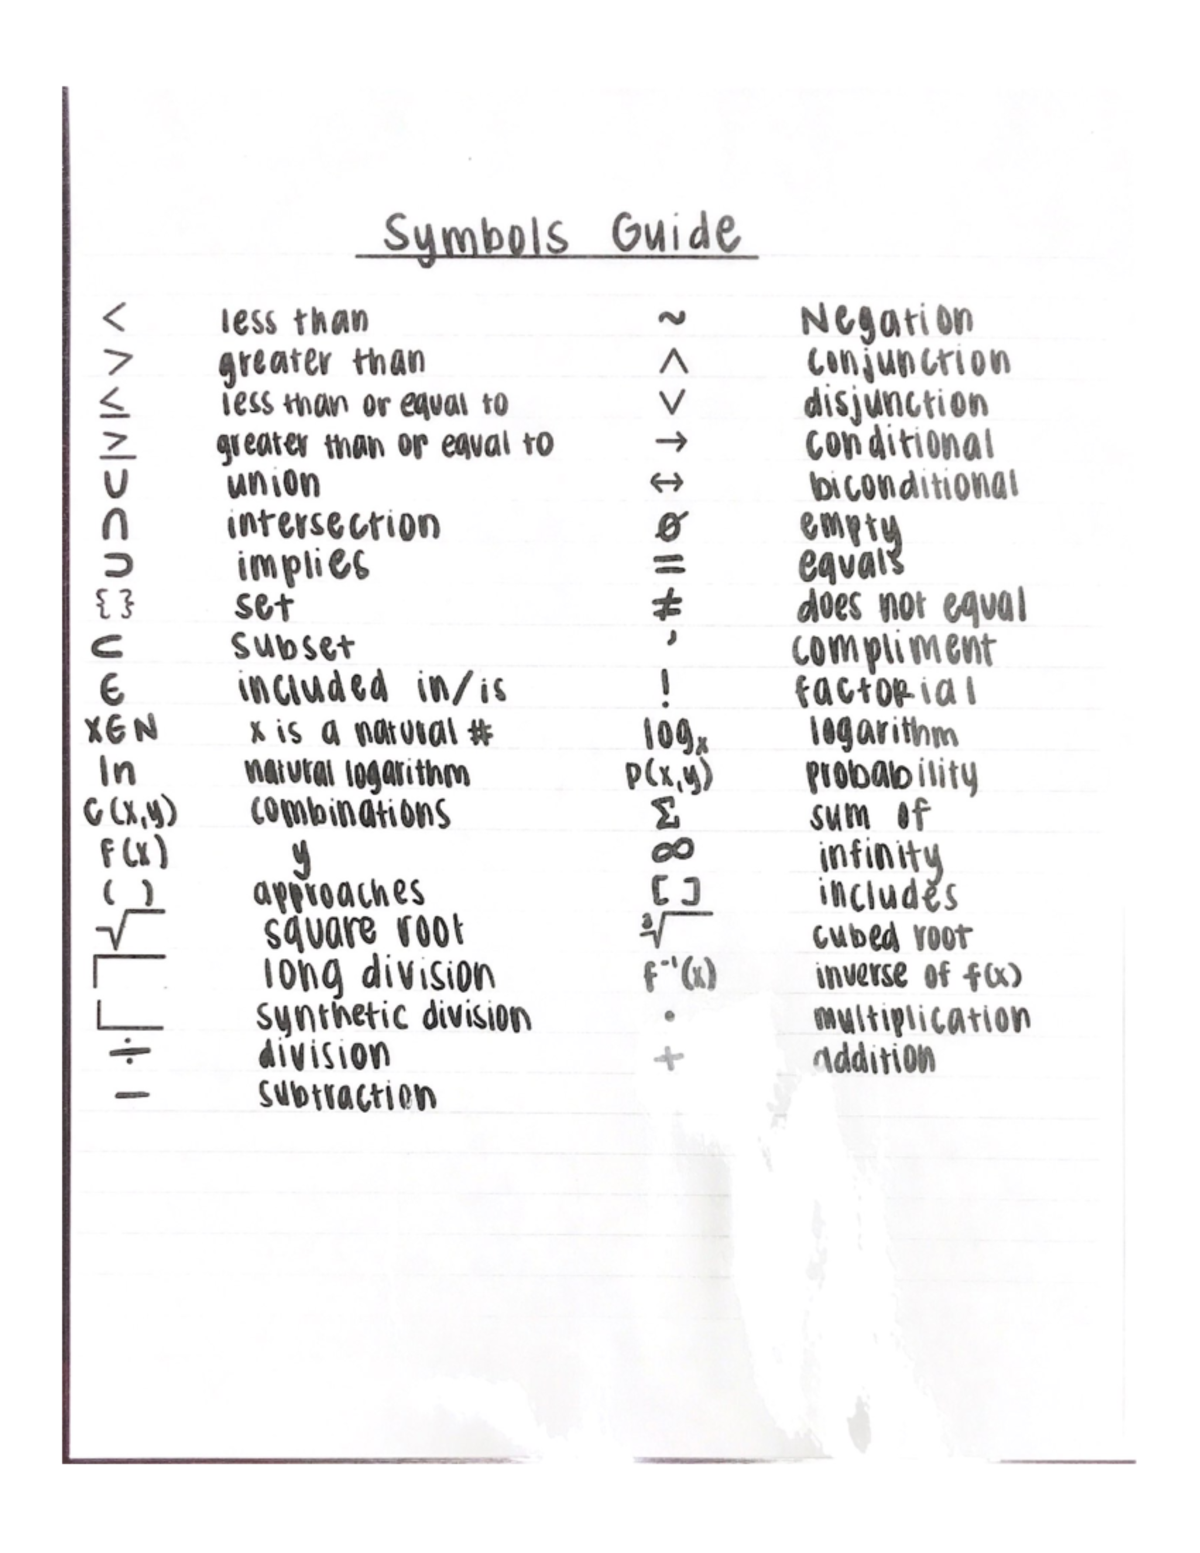 Symbols Guide
< less than ~ Negation
> greater than ∧ conjunction
≤ less than or equal to ∨ disjunction
≥ greater than or equal to → conditional
∪ union ↔ biconditional
∩ intersection ∅ empty
⊃ implies = equals
{ } set ≠ does not equal
⊂ subset ' compliment
∈ included in/is ! factorial
X∈N x is a natural # logₓ logarithm
ln natural logarithm P(x,y) probability
C(x,y) combinations Σ sum of
f(x) y ∞ infinity
( ) approaches [ ] includes
√ square root ∛ cubed root
┌ long division f⁻¹(x) inverse of f(x)
└ synthetic division • multiplication
÷ division + addition
− subtraction